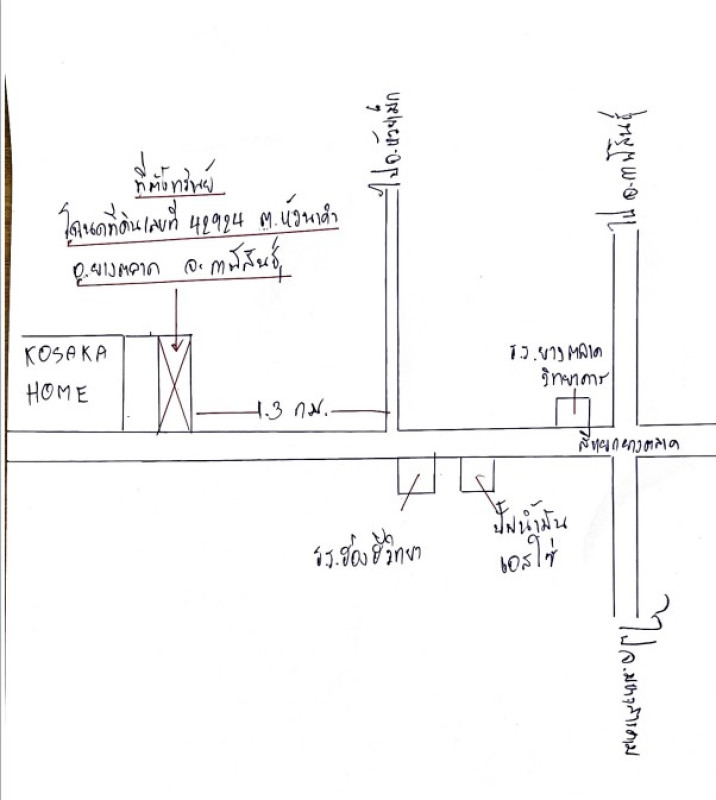 ไป อ.ห้วยเม็ก
ไป จ.กาฬสินธุ์
ที่ตั้งทรัพย์
โฉนดที่ดินเลขที่ 42924 ต.หัวนาคำ
อ.ยางตลาด จ.กาฬสินธุ์
KOSAKA
HOME
1.3 กม.
ร.ร.ยางตลาด
วิทยาคาร
สี่แยกยางตลาด
ร.ร.ฮ่องฮีวิทยา
ปั๊มน้ำมัน
เอสโซ่
ไป จ.มหาสารคาม